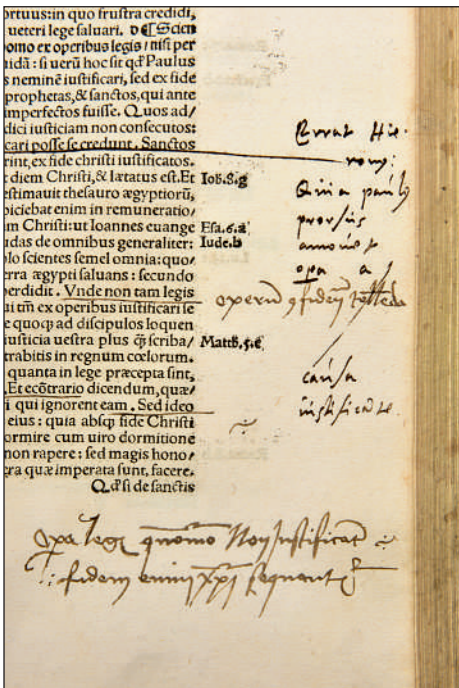 ortuus: in quo frustra credidi,
ueteri lege saluari. D ¶Scien
homo ex operibus legis: nisi per
uidā: si uerū hoc sit qđ Paulus
s neminē iustificari, sed ex fide
prophetas, & sanctos, qui ante
imperfectos fuisse. Quos ad/
dici iusticiam non consecutos:
cari posse se credunt. Sanctos
rint, ex fide christi iustificatos.
t diem Christi, & lætatus est. Et
estimauit thesauro ægyptiorū,
piciebat enim in remuneratio/
m Christi: ut Ioannes euange
idas de omnibus generaliter:
lo scientes semel omnia: quo/
erra ægypti saluans: secundo
perdidit. Vnde non tam legis
ui tm̄ ex operibus iustificari se
e quoqȝ ad discipulos loquen
iusticia uestra plus q̄ȝ scriba/
trabitis in regnum cœlorum.
quanta in lege præcepta sint,
. Et ecōtrario dicendum, quæ/
i qui ignorent eam. Sed ideo
eius: quia absqȝ fide Christi
ormire cum uiro dormitione
non rapere: sed magis hono/
ra quæ imperata sunt, facere.
Qđ si de sanctis
Ioh.8.g
Esa.6.a
Iude.b
Matth.5.c
Errat Hie
rony:
Quia paulus
prorsus
amouet
opa a
operū fidem
causa
iustificante.
Opa legis quomo Non Justificāt
fidem enim xp̄i sequunt